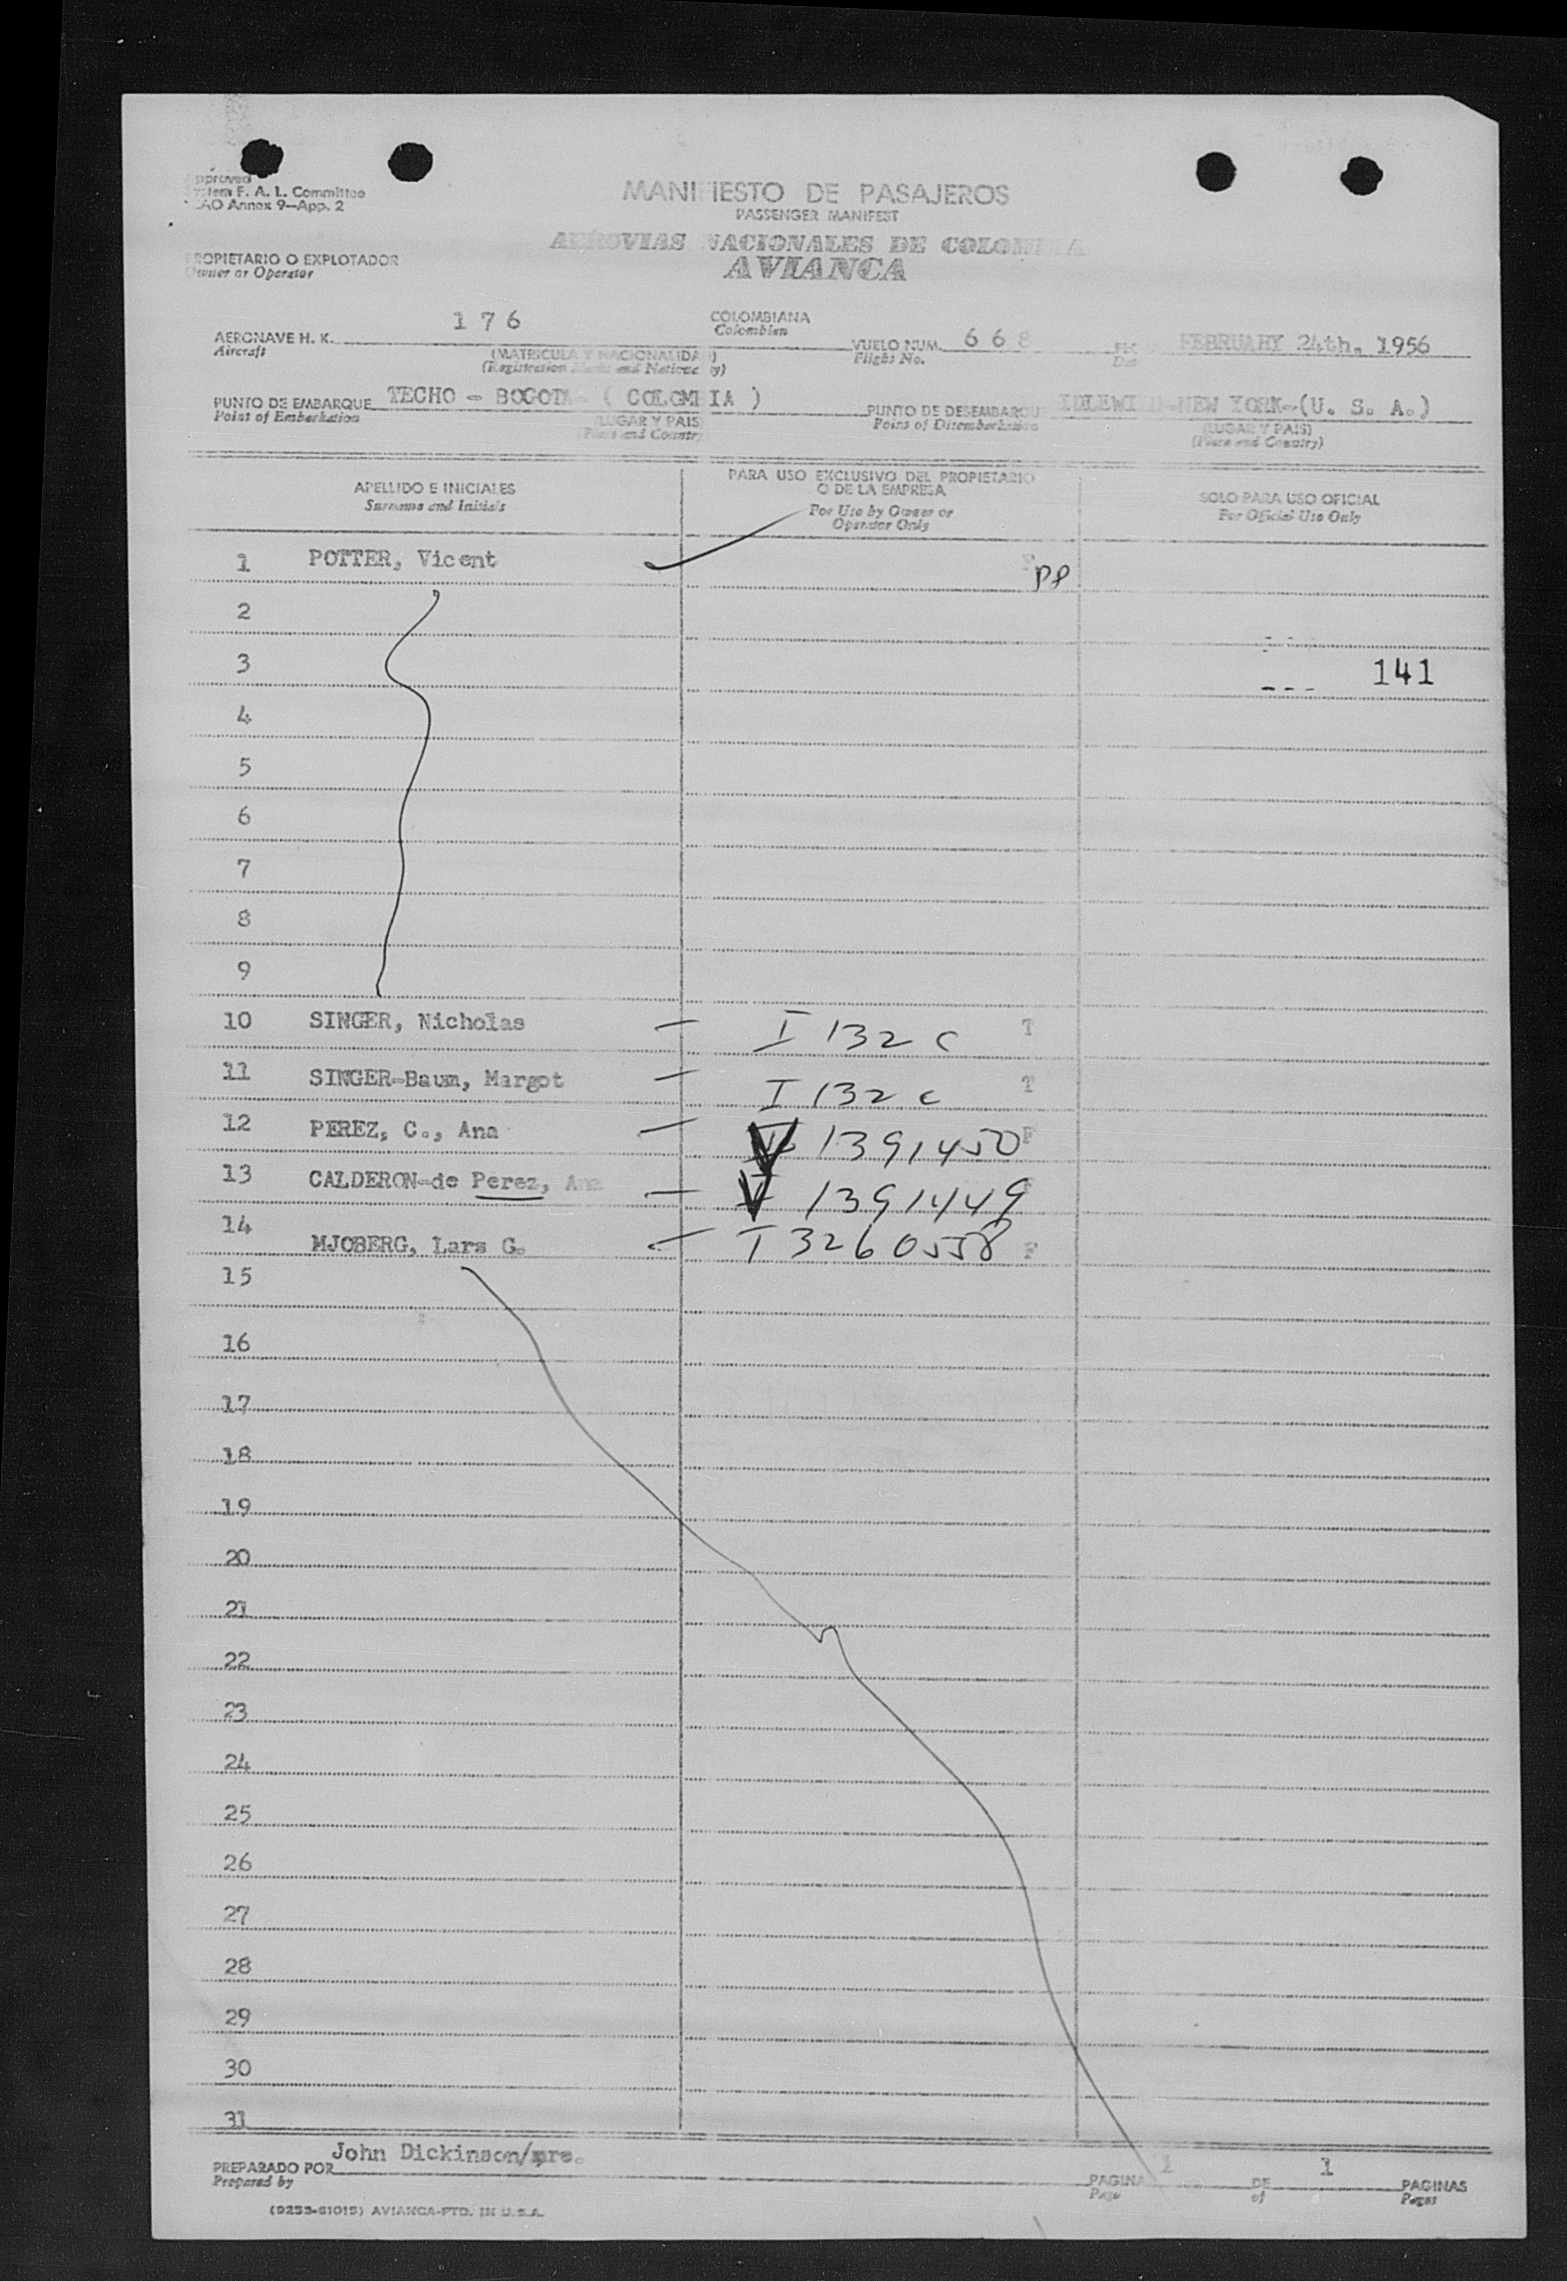 Approved
System F. A. L. Committee
ICAO Annex 9—App. 2
MANIFIESTO DE PASAJEROS
PASSENGER MANIFEST
AEROVIAS NACIONALES DE COLOMBIA
AVIANCA
PROPIETARIO O EXPLOTADOR
Owner or Operator
AERONAVE H. K. 1 7 6 COLOMBIANA VUELO NUM. 6 6 8 FEBRUARY 24th. 1956
Aircraft Colombian Flight No.
(MATRICULA Y NACIONALIDAD)
(Registration Marks and Nationality)
PUNTO DE EMBARQUE TECHO - BOGOTA- ( COLOMBIA ) PUNTO DE DESEMBARQUE IDLEWILD-NEW YORK-(U. S. A.)
Point of Embarkation (LUGAR Y PAIS) Point of Disembarkation (LUGAR Y PAIS)
(Place and Country) (Place and Country)
APELLIDO E INICIALES PARA USO EXCLUSIVO DEL PROPIETARIO O DE LA EMPRESA SOLO PARA USO OFICIAL
Surname and Initials For Use by Owner or Operator Only For Official Use Only
1 POTTER, Vicent F PP
2
3 141
4
5
6
7
8
9
10 SINGER, Nicholas I 132 C T
11 SINGER-Baum, Margot I 132 C T
12 PEREZ, C., Ana V 1391450 F
13 CALDERON-de Perez, Ana V 1391449 F
14 MJOBERG, Lars G. I 3260558 F
15
16
17
18
19
20
21
22
23
24
25
26
27
28
29
30
31
PREPARADO POR John Dickinson/mre. PAGINA 1 DE 1 PAGINAS
Prepared by Page of Pages
(9253-61015) AVIANCA-PTD. IN U.S.A.